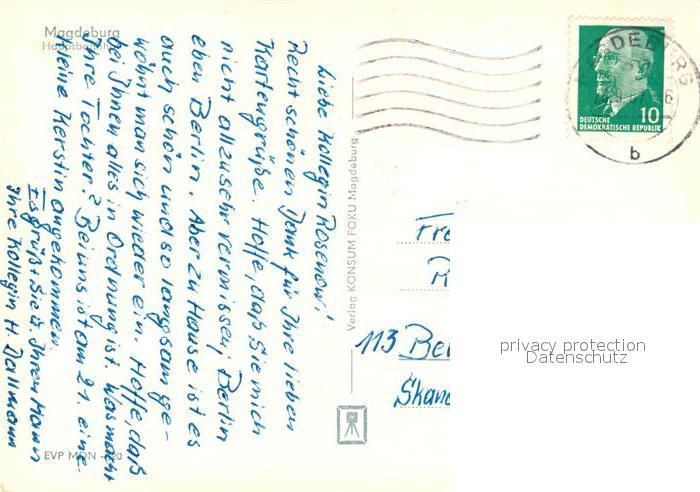 Magdeburg
Hauptbahnhof
Liebe Kollegin Rosenow!
Recht schönen Dank für Ihre lieben
Kartengrüße. Hoffe, daß Sie mich
nicht allzusehr vermissen, Berlin
eben Berlin. Aber zu Hause ist es
auch schön und so langsam ge-
wöhnt man sich wieder ein. Hoffe, daß
bei Ihnen alles in Ordnung ist. Was macht
Ihre Tochter? Bei uns ist am 21. eine
kleine Kerstin angekommen.
Es grüßt Sie u. Ihren Mann
Ihre Kollegin H. Dallmann
EVP MDN -,20
Verlag KONSUM FOKU Magdeburg
DEUTSCHE
DEMOKRATISCHE REPUBLIK
10
DEBURG
b
Fr
R
113 Be
Skan
privacy protection
Datenschutz